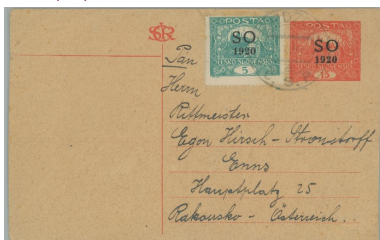 POSTA
SO
1920
5
POSTA
SO
1920
15
Pan
Herrn
Rittmeister
Egon Hirsch - Stronstorff
Enns
Hauptplatz 25
Rakousko - Österreich..